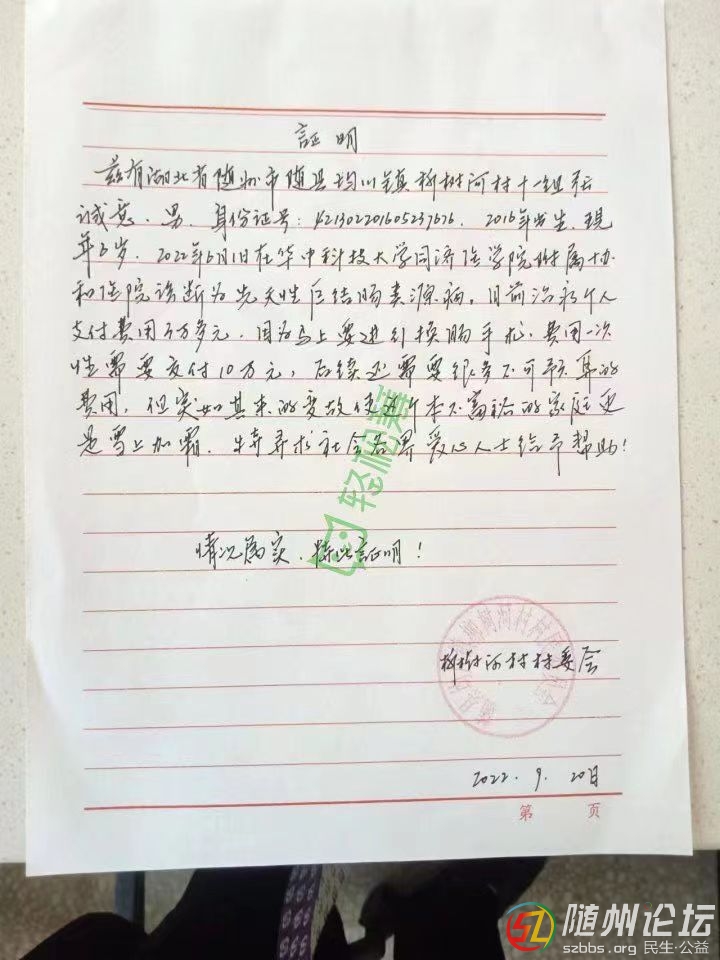 証明
兹有湖北省随州市随县均川镇柳树河村十组
诚意、男、身份证号:421302201605237676. 2016年出生.现
年6岁. 2022年6月1日在华中科技大学同济医学院附属协
和医院诊断为先天性巨结肠类源病,目前治疗个人
支付费用3万多元.因为马上要进行换肠手术、费用一次
性需要交付10万元,后续还需要很多不可预算的
费用,但突如其来的变故使这个本不富裕的家庭更
是雪上加霜.特寻求社会各界爱心人士给予帮助!
情况属实、特此証明!
柳树河村村委会
2022.9.20日
第 页
轻松筹
随州论坛
szbbs.org 民生·公益